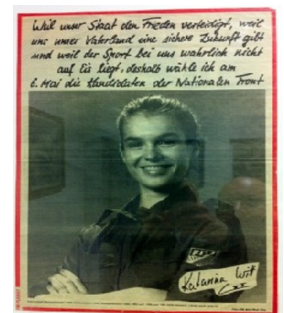 Weil unser Staat den Frieden verteidigt, weil
uns unser Vaterland eine sichere Zukunft gibt
und weil der Sport bei uns wahrlich nicht
auf Eis liegt, deshalb wähle ich am
Mai die Kandidaten der Nationalen Front
Katarina Witt